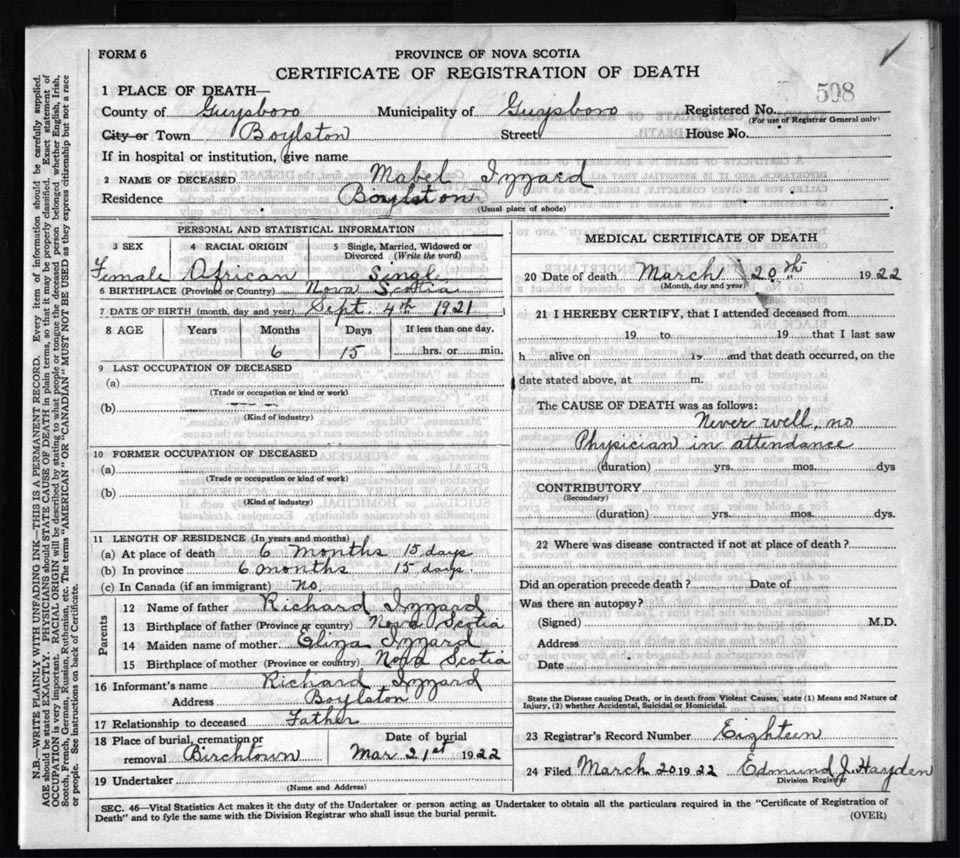 FORM 6
PROVINCE OF NOVA SCOTIA
CERTIFICATE OF REGISTRATION OF DEATH
508
1 PLACE OF DEATH—
County of Guysboro Municipality of Guysboro Registered No.
(For use of Registrar General only)
City or Town Boylston Street House No.
If in hospital or institution, give name
2 NAME OF DECEASED Mabel Izzard
Residence Boylston
(Usual place of abode)
PERSONAL AND STATISTICAL INFORMATION
3 SEX 4 RACIAL ORIGIN Single, Married, Widowed or Divorced (Write the word)
Female African Single
6 BIRTHPLACE (Province or Country) Nova Scotia
7 DATE OF BIRTH (month, day and year) Sept. 4th 1921
8 AGE Years Months Days If less than one day,
6 15 hrs. or min.
9 LAST OCCUPATION OF DECEASED
(a)
(Trade or occupation or kind or work)
(b)
(Kind of industry)
10 FORMER OCCUPATION OF DECEASED
(a)
(Trade or occupation or kind of work)
(b)
(Kind of industry)
11 LENGTH OF RESIDENCE (In years and months)
(a) At place of death 6 months 15 days
(b) In province 6 months 15 days.
(c) In Canada (if an immigrant) No
Parents
12 Name of father Richard Izzard
13 Birthplace of father (Province or country) Nova Scotia
14 Maiden name of mother Eliza Izzard
15 Birthplace of mother (Province or country) Nova Scotia
16 Informant's name Richard Izzard
Address Boylston
17 Relationship to deceased Father
18 Place of burial, cremation or removal Birchtown Date of burial Mar 21st 1922
19 Undertaker
(Name and Address)
MEDICAL CERTIFICATE OF DEATH
20 Date of death March 20th 1922
(Month, day and year)
21 I HEREBY CERTIFY, that I attended deceased from
19 to 19 that I last saw
h alive on 19 and that death occurred, on the
date stated above, at m.
The CAUSE OF DEATH was as follows:
Never well, no
Physician in attendance
(duration) yrs. mos. dys
CONTRIBUTORY
(Secondary)
(duration) yrs. mos. dys.
22 Where was disease contracted if not at place of death?
Did an operation precede death? Date of
Was there an autopsy?
(Signed) M.D.
Address
Date
State the Disease causing Death, or in death from Violent Causes, state (1) Means and Nature of
Injury, (2) whether Accidental, Suicidal or Homicidal.
23 Registrar's Record Number Eighteen
24 Filed March 20 1922 Edmund J. Hayden
Division Registrar
SEC. 46—Vital Statistics Act makes it the duty of the Undertaker or person acting as Undertaker to obtain all the particulars required in the "Certificate of Registration of
Death" and to fyle the same with the Division Registrar who shall issue the burial permit.
(OVER)
N.B.—WRITE PLAINLY WITH UNFADING INK—THIS IS A PERMANENT RECORD. Every item of information should be carefully supplied.
AGE should be stated EXACTLY. PHYSICIANS should STATE CAUSE OF DEATH in plain terms, so that it may be properly classified. Exact statement of
OCCUPATION is very important. RACIAL ORIGIN will be described by stating to what people or tongue the deceased person belonged whether English, Irish,
Scotch, French, German, Russian, Ruthenian, etc. The terms "AMERICAN" OR "CANADIAN" MUST NOT BE USED as they express citizenship but not a race
or people. See instructions on back of Certificate.